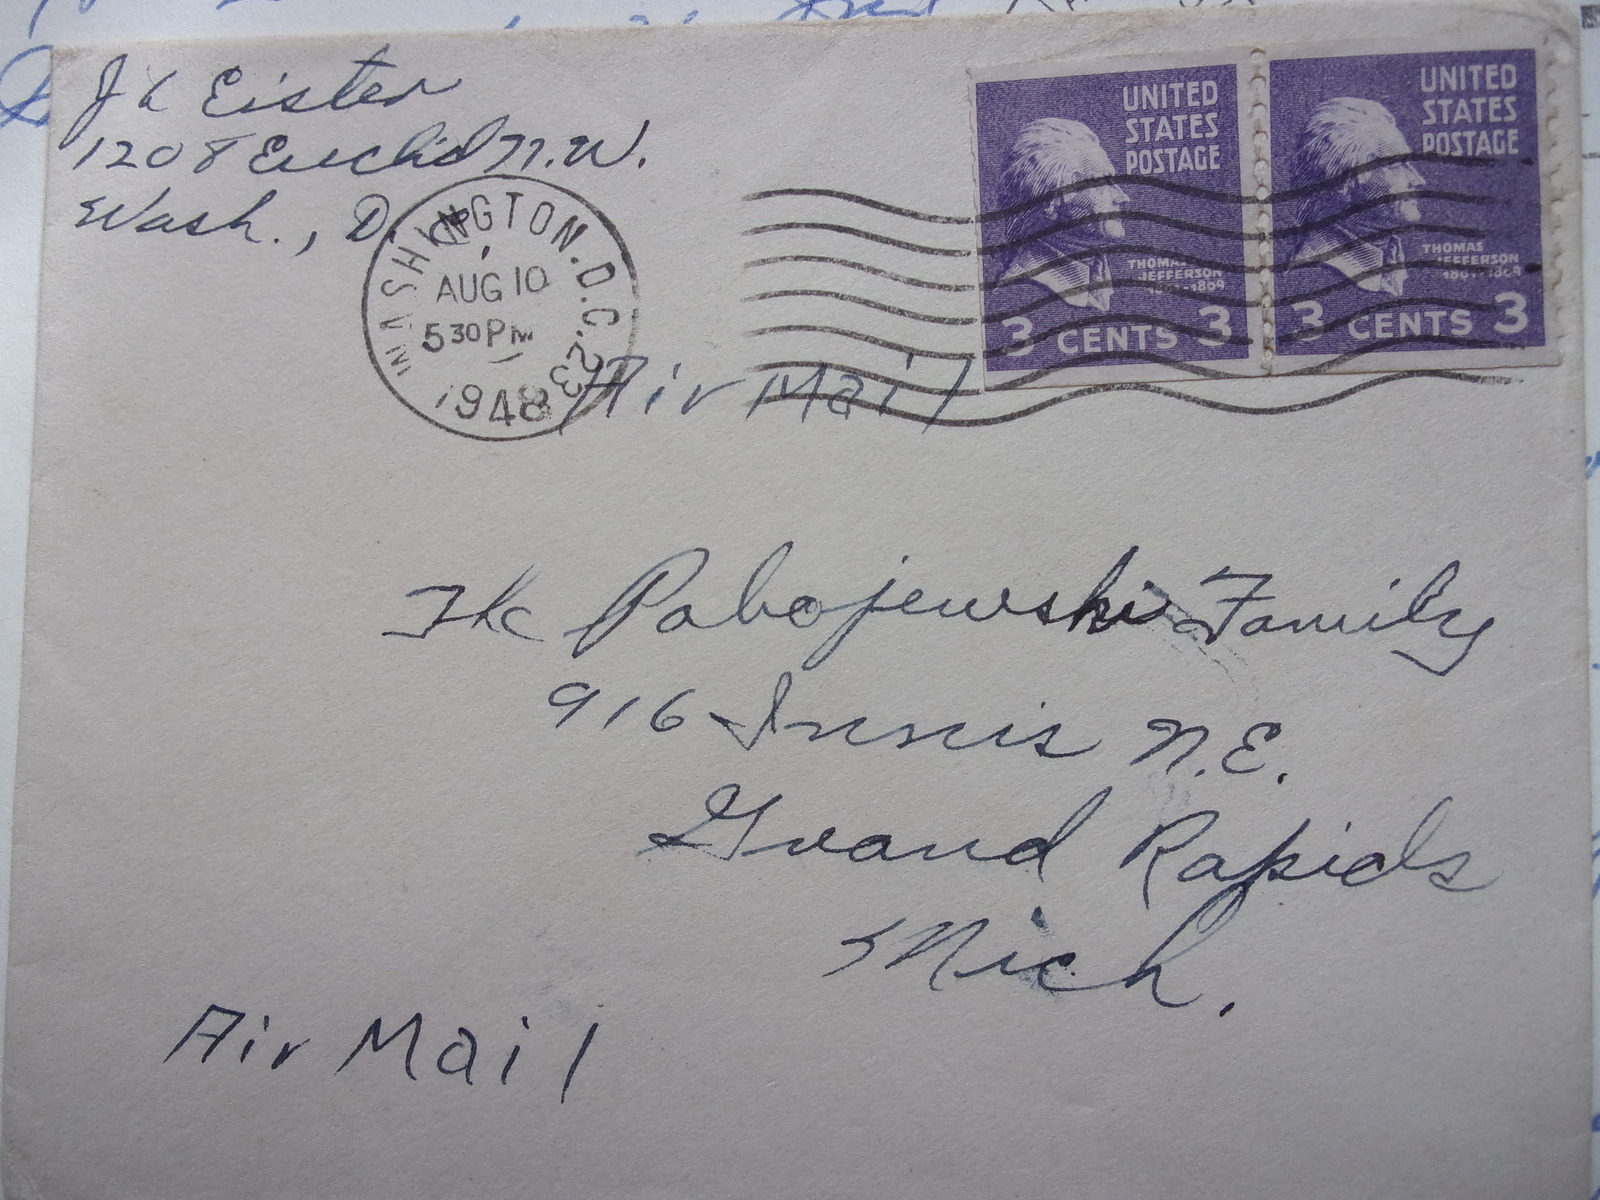 J L Eister
1208 Euclid N.W.
Wash., D
WASHINGTON, D.C. 23
AUG 10
5 30 PM
1948
UNITED
STATES
POSTAGE
THOMAS
JEFFERSON
1801-1809
3 CENTS 3
UNITED
STATES
POSTAGE
THOMAS
JEFFERSON
1801-1809
3 CENTS 3
Air Mail
The Pabojewski Family
916 Innis N.E.
Grand Rapids
Mich.
Air Mail